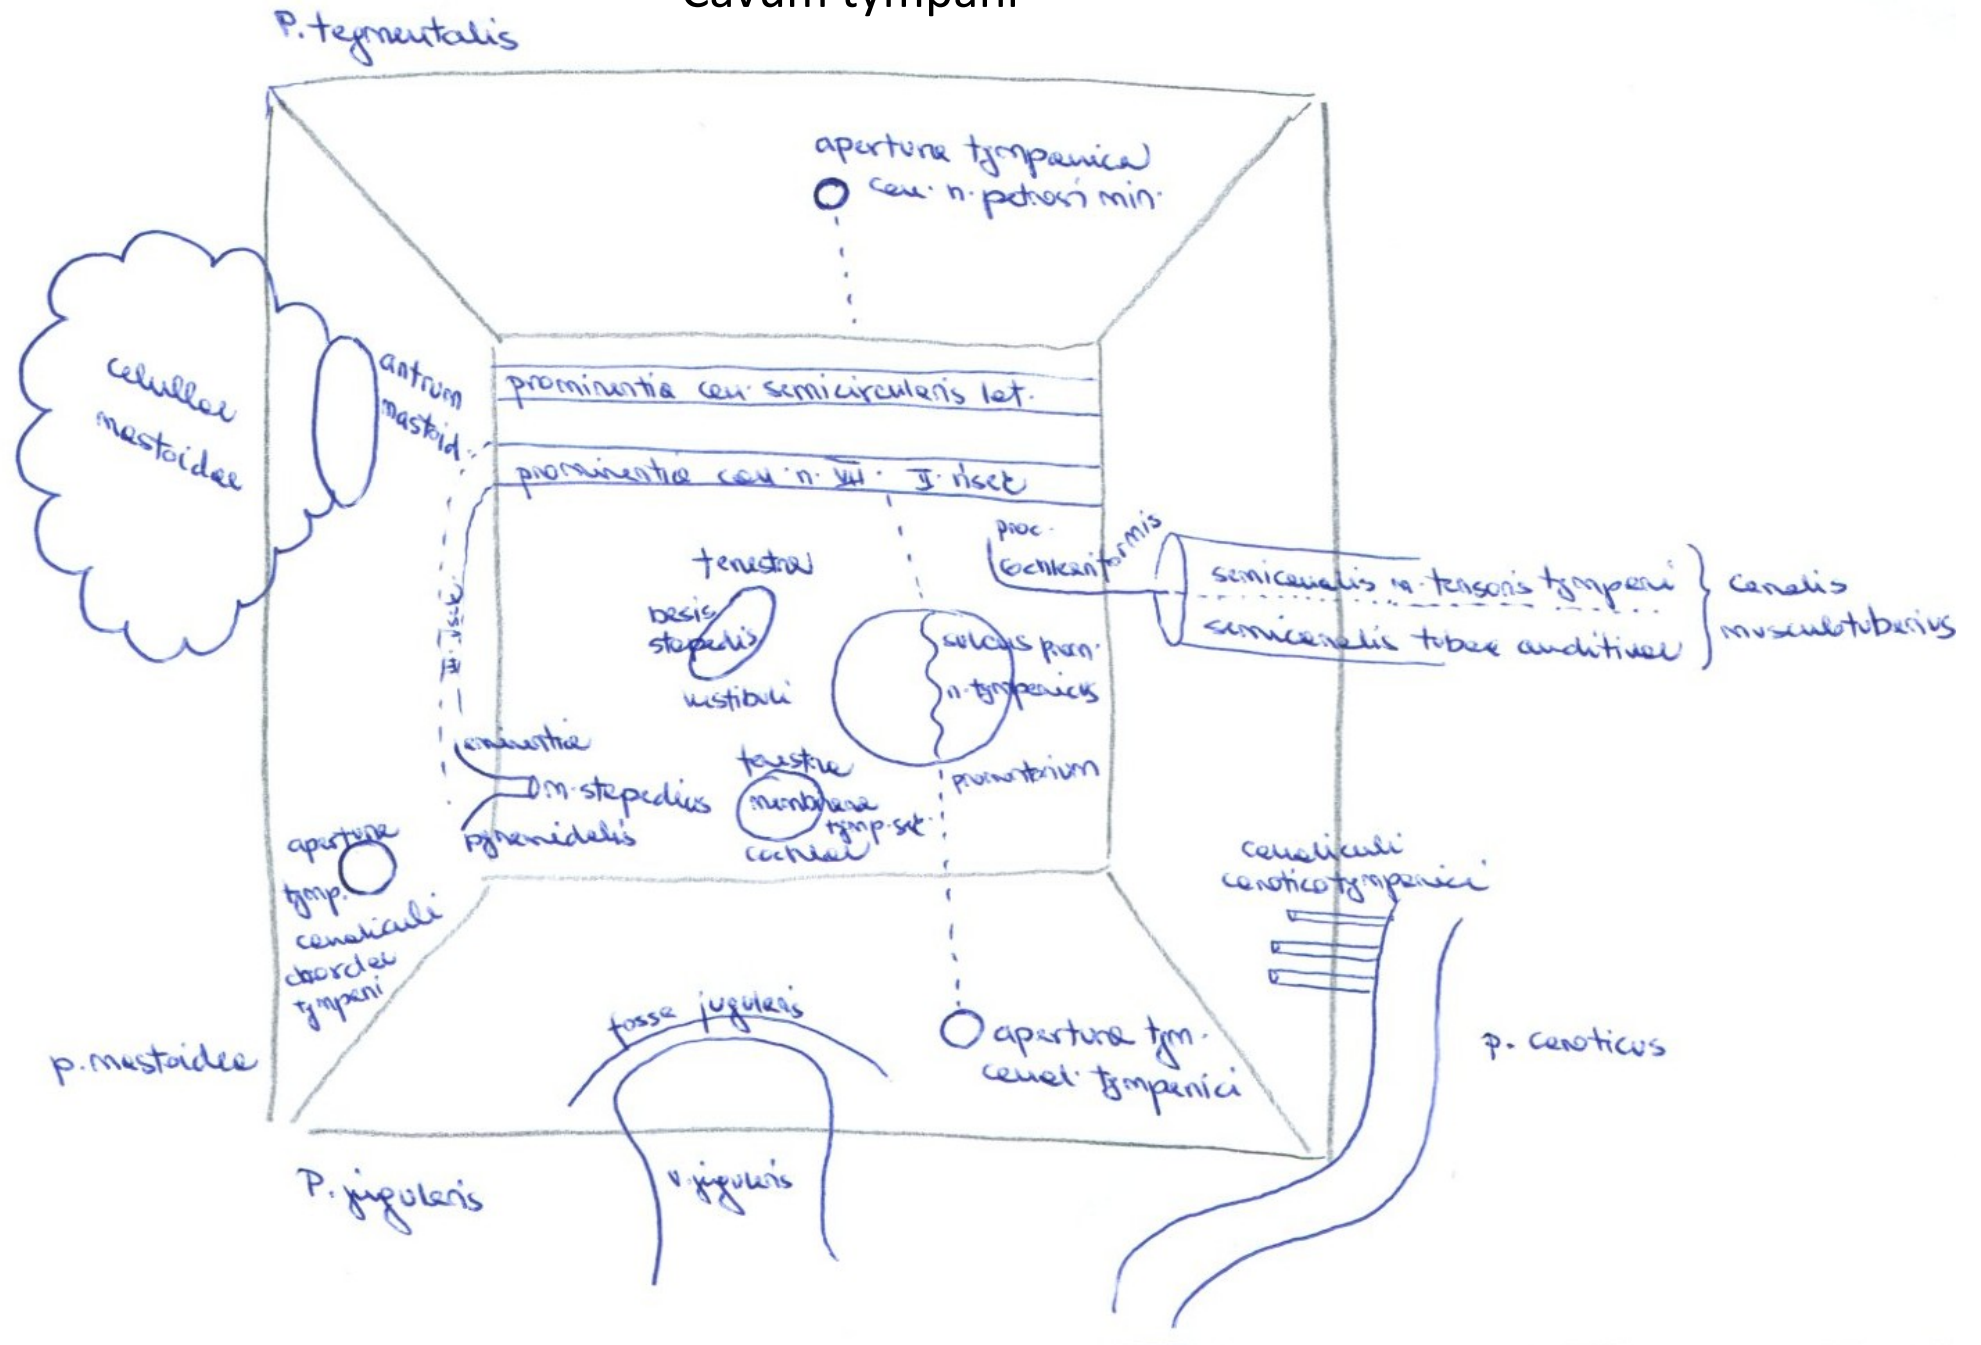 Cavum tympani
P. tegmentalis
apertura tympanica
can. n. petrosi min.
celullae
mastoidae
antrum
mastoid.
prominentia can. semicircularis lat.
prominentia can. n. VII. II. rísct
proc.
cochleariformis
semicanalis m. tensoris tympani
semicanalis tubae auditivae
canalis
musculotubarius
fenestra
basis
stapedis
vestibuli
sulcus prom.
n. tympanicus
promontorium
III. rész
eminentia
m. stapedius
pyramidalis
fenestra
membrana
tymp. sec.
cochlea
apertura
tymp.
canaliculi
chordae
tympani
canaliculi
caroticotympanici
p. mastoidea
fossa jugularis
apertura tym.
canal. tympanici
p. caroticus
P. jugularis
v. jugularis